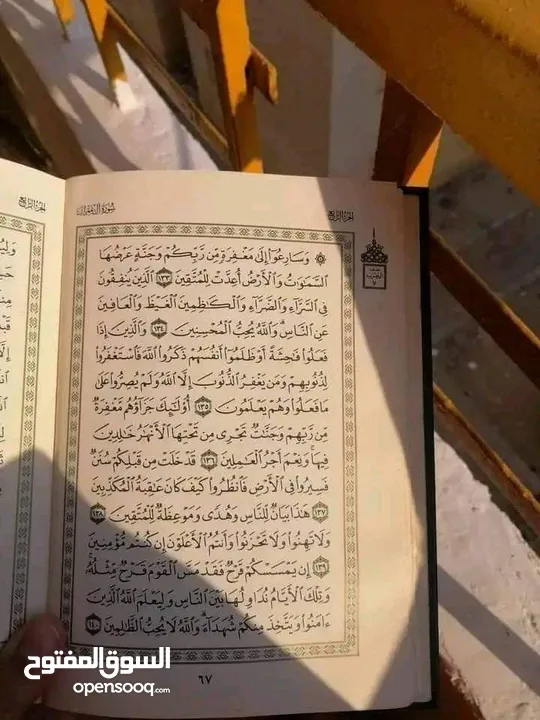 الجزء الرابع
سورة آل عمران
الجزء الرابع
۞ وَسَارِعُوٓا۟ إِلَىٰ مَغْفِرَةٍ مِّن رَّبِّكُمْ وَجَنَّةٍ عَرْضُهَا
ٱلسَّمَٰوَٰتُ وَٱلْأَرْضُ أُعِدَّتْ لِلْمُتَّقِينَ ١٣٣ ٱلَّذِينَ يُنفِقُونَ
فِى ٱلسَّرَّآءِ وَٱلضَّرَّآءِ وَٱلْكَٰظِمِينَ ٱلْغَيْظَ وَٱلْعَافِينَ
عَنِ ٱلنَّاسِ وَٱللَّهُ يُحِبُّ ٱلْمُحْسِنِينَ ١٣٤ وَٱلَّذِينَ إِذَا
فَعَلُوا۟ فَٰحِشَةً أَوْ ظَلَمُوٓا۟ أَنفُسَهُمْ ذَكَرُوا۟ ٱللَّهَ فَٱسْتَغْفَرُوا۟
لِذُنُوبِهِمْ وَمَن يَغْفِرُ ٱلذُّنُوبَ إِلَّا ٱللَّهُ وَلَمْ يُصِرُّوا۟ عَلَىٰ
مَا فَعَلُوا۟ وَهُمْ يَعْلَمُونَ ١٣٥ أُو۟لَٰٓئِكَ جَزَآؤُهُم مَّغْفِرَةٌ
مِّن رَّبِّهِمْ وَجَنَّٰتٌ تَجْرِى مِن تَحْتِهَا ٱلْأَنْهَٰرُ خَٰلِدِينَ
فِيهَا وَنِعْمَ أَجْرُ ٱلْعَٰمِلِينَ ١٣٦ قَدْ خَلَتْ مِن قَبْلِكُمْ سُنَنٌ
فَسِيرُوا۟ فِى ٱلْأَرْضِ فَٱنظُرُوا۟ كَيْفَ كَانَ عَٰقِبَةُ ٱلْمُكَذِّبِينَ
١٣٧ هَٰذَا بَيَانٌ لِّلنَّاسِ وَهُدًى وَمَوْعِظَةٌ لِّلْمُتَّقِينَ ١٣٨
وَلَا تَهِنُوا۟ وَلَا تَحْزَنُوا۟ وَأَنتُمُ ٱلْأَعْلَوْنَ إِن كُنتُم مُّؤْمِنِينَ
١٣٩ إِن يَمْسَسْكُمْ قَرْحٌ فَقَدْ مَسَّ ٱلْقَوْمَ قَرْحٌ مِّثْلُهُۥ
وَتِلْكَ ٱلْأَيَّامُ نُدَاوِلُهَا بَيْنَ ٱلنَّاسِ وَلِيَعْلَمَ ٱللَّهُ ٱلَّذِينَ
ءَامَنُوا۟ وَيَتَّخِذَ مِنكُمْ شُهَدَآءَ وَٱللَّهُ لَا يُحِبُّ ٱلظَّٰلِمِينَ ١٤٠
٦٧
السوق المفتوح
opensooq.com